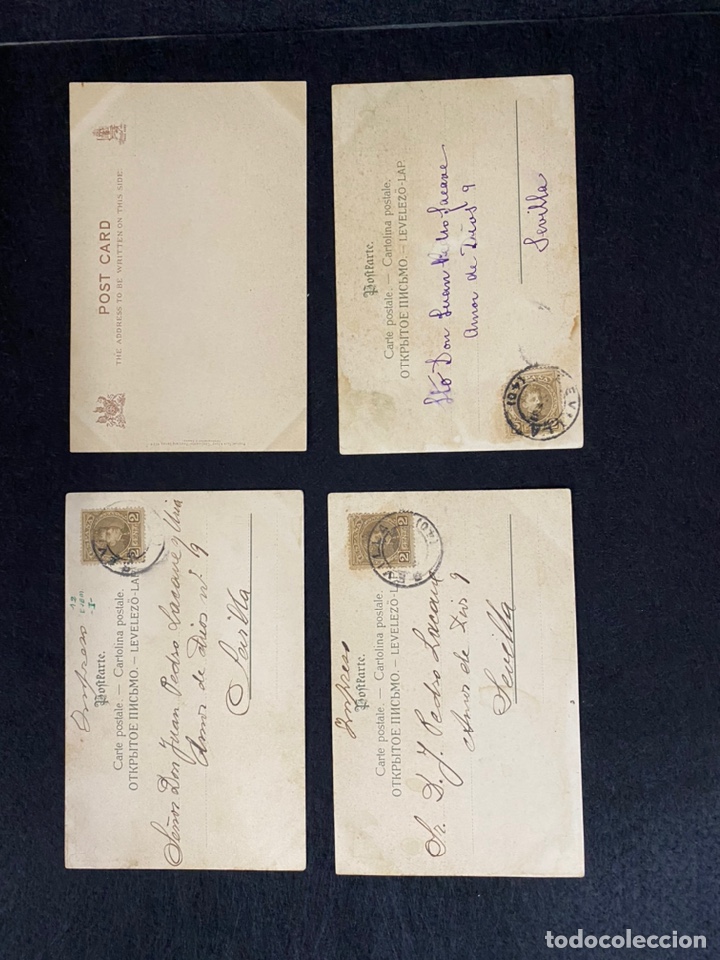 POST CARD
THE ADDRESS TO BE WRITTEN ON THIS SIDE.
Postkarte.
Carte postale. — Cartolina postale.
ОТКРЫТОЕ ПИСЬМО. – LEVELEZÖ-LAP.
Don Juan Pedro Lacave
Amor de Dios 9
Sevilla
SEVILLA
Impreso
Postkarte.
Carte postale. — Cartolina postale.
ОТКРЫТОЕ ПИСЬМО. – LEVELEZÖ-LAP.
Señor Don Juan Pedro Lacave y
Amor de Dios nº 9
Sevilla
2 CENT 2
Impreso
Postkarte.
Carte postale. — Cartolina postale.
ОТКРЫТОЕ ПИСЬМО. – LEVELEZÖ-LAP.
Sr. D. J. Pedro Lacave
Amor de Dios 9
Sevilla
2 CENT 2
todocoleccion
todocoleccion.net